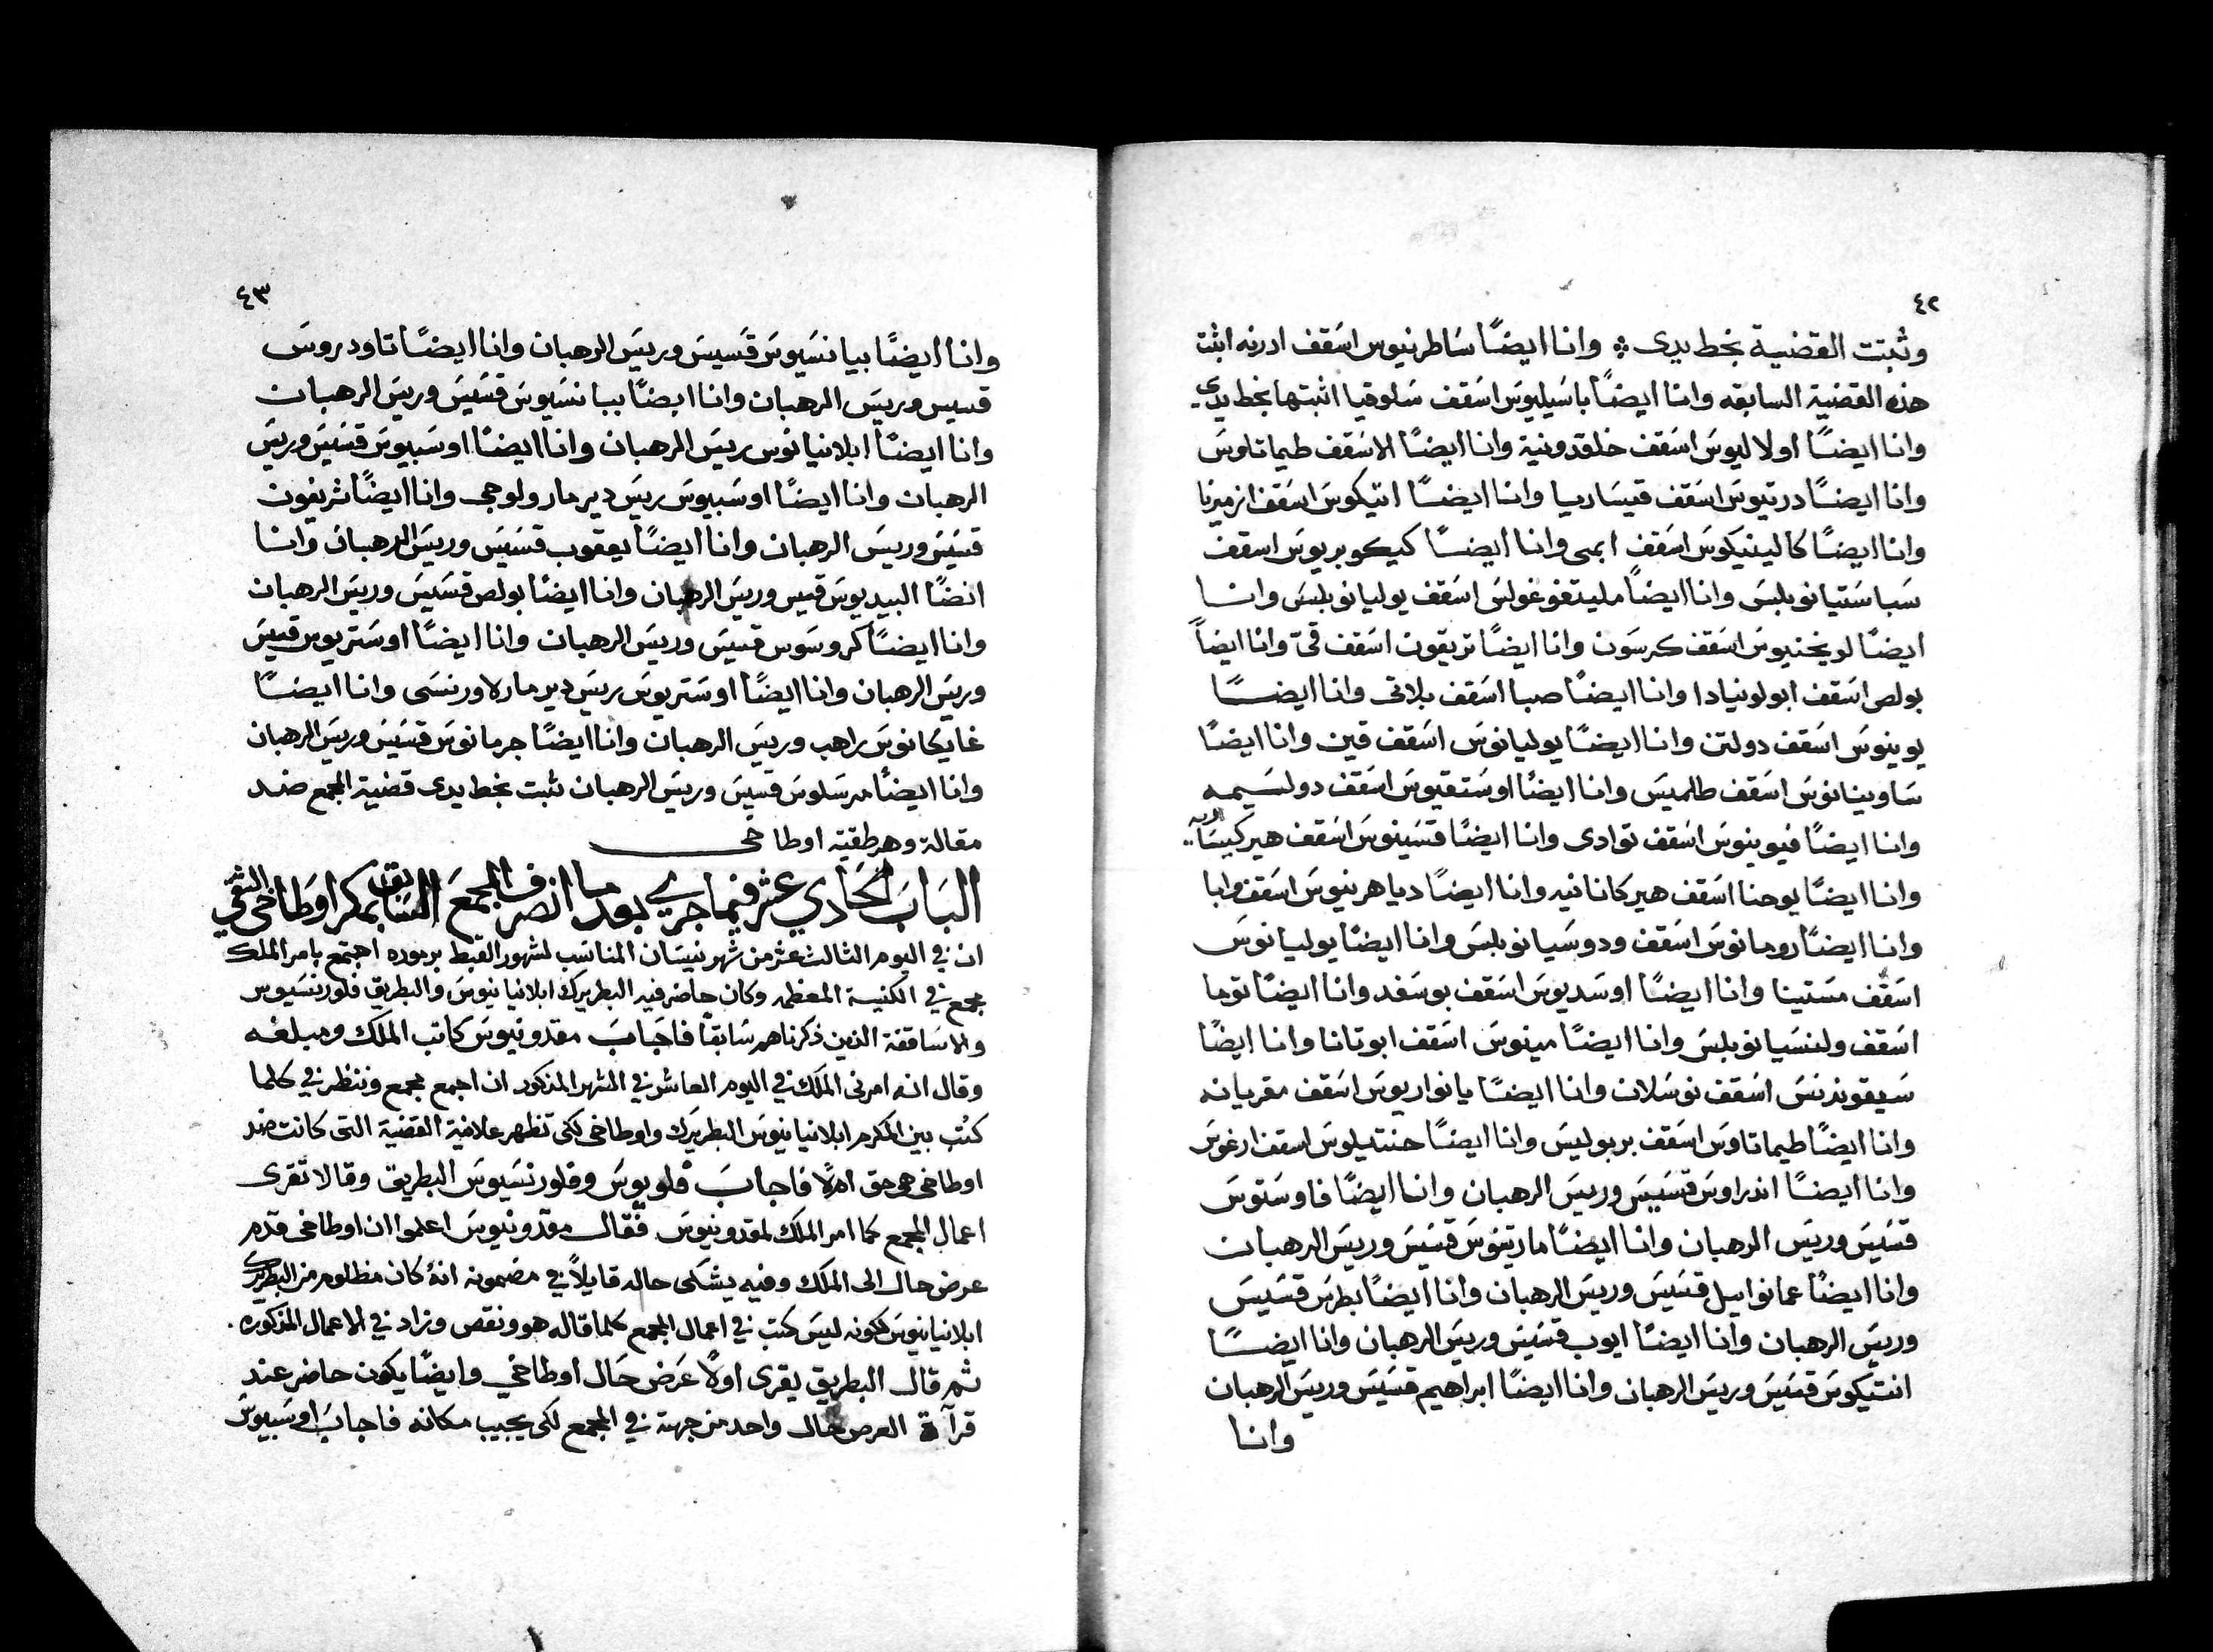 ٤٢
وثبتت القضية بخط يدى ؞ وانا ايضًا ساطرنيوس اسقف ادرنه اثبت
هذه القضية السابقه وانا ايضًا باسيليوس اسقف سلوقيا اثبتها بخط يدي
وانا ايضًا اولاليوس اسقف خلقدونية وانا ايضًا الاسقف طيماتاوس
وانا ايضًا درتيوس اسقف قيساريا وانا ايضًا اتيكوس اسقف ازميرنا
وانا ايضًا كالينيكوس اسقف ابمى وانا ايضًا كيكوبريوس اسقف
سباستيانوبلس وانا ايضاً مليتفوغولس اسقف يوليانوبلس وانا
ايضًا لويخنيوس اسقف كرسون وانا ايضًا تريفون اسقف قىّ وانا ايضاً
بولص اسقف ابولونيادا وانا ايضًا صبا اسقف بلاتى وانا ايضًا
يوينوس اسقف دولتن وانا ايضًا يوليانوس اسقف قين وانا ايضًا
ساوينانوس اسقف طالميس وانا ايضًا اوستقيوس اسقف دولسيمه
وانا ايضًا فيوينوس اسقف توادى وانا ايضًا قسينوس اسقف هيركيسارية
وانا ايضًا يوحنا اسقف هيركانانيه وانا ايضًا دياهرنيوس اسقف وابا
وانا ايضًا رومانوس اسقف ودوسيانوبلس وانا ايضًا يوليانوس
اسقف مستينا وانا ايضًا اوسديوس اسقف بوسفد وانا ايضًا توما
اسقف ولنسيانوبلس وانا ايضًا مينوس اسقف ابوتانا وانا ايضًا
سيقوندنس اسقف نوسلان وانا ايضًا يانواريوس اسقف مقريانه
وانا ايضًا طيماتاوس اسقف بربوليس وانا ايضًا حنتيلوس اسقف ارغوس
وانا ايضًا اندراوس قسيس وريس الرهبان وانا ايضًا فاوستوس
قسيس وريس الرهبان وانا ايضًا مارتينوس قسيس وريس الرهبان
وانا ايضًا عمانوايل قسيس وريس الرهبان وانا ايضًا بطرس قسيس
وريس الرهبان وانا ايضًا ايوب قسيس وريس الرهبان وانا ايضًا
انتيكوس قسيس وريس الرهبان وانا ايضًا ابراهيم قسيس وريس الرهبان
وانا
٤٣
وانا ايضًا بيانسيوس قسيس وريس الرهبان وانا ايضًا تاودروس
قسيس وريس الرهبان وانا ايضًا ببانسيوس قسيس وريس الرهبان
وانا ايضًا ابلانيانوس ريس الرهبان وانا ايضًا اوسبيوس قسيس وريس
الرهبان وانا ايضًا اوسبيوس ريس دير مار ولوجى وانا ايضًا ثريفون
قسيس وريس الرهبان وانا ايضًا يعقوب قسيس وريس الرهبان وانا
ايضًا البيديوس قسيس وريس الرهبان وانا ايضًا بولص قسيس وريس الرهبان
وانا ايضًا كروسوس قسيس وريس الرهبان وانا ايضًا اوستريوس قسيس
وريس الرهبان وانا ايضًا اوستريوس ريس دير مار لاورنسى وانا ايضًا
غايكانوس راهب وريس الرهبان وانا ايضًا جرمانوس قسيس وريس الرهبان
وانا ايضًا مرسلوس قسيس وريس الرهبان ثبت بخط يدى قضية المجمع ضد
مقالة وهرطقية اوطاخى
الباب الحادي عشر فيما جري بعد ما انصرف المجمع السابق بمكر اوطاخى الشقي
ان في اليوم الثالث عشر من شهر نيسان المناسب لشهور القبط برموده اجتمع بامر الملك
مجمع في الكنيسة المعظمه وكان حاضر فيه البطريرك ابلانيانيوس والبطريق فلورنسيوس
والاساقفة الذين ذكرناهم سابقًا فاجاب مقدونيوس كاتب الملك ومبلغه
وقال انه امرنى الملك في اليوم العاشر في الشهر المذكور ان اجمع مجمع وننظر في كلما
كتب بين المكرم ابلانيانيوس البطريرك واوطاخى لكى تظهر علانية القضية التى كانت ضد
اوطاخى هى حق ام لا فاجاب فلويوس وفلورنسيوس البطريق وقالا تقرى
اعمال المجمع كما امر الملك لمقدونيوس فقال مقدونيوس اعلموا ان اوطاخى قدم
عرض حال الى الملك وفيه يشكى حاله قايلاً في مضمونه انهُ كان مظلوم من البطريرك
ابلانيانيوس لكونه ليس كتب في اعمال المجمع كلما قاله هو ونقص وزاد في الاعمال المذكوره.
ثم قال البطريق يقرى اولاً عرض حال اوطاخي وايضًا يكون حاضر عند
قرآة العرض حال واحد من جهته في المجمع لكى يجيب مكانه فاجاب اوسبيوس